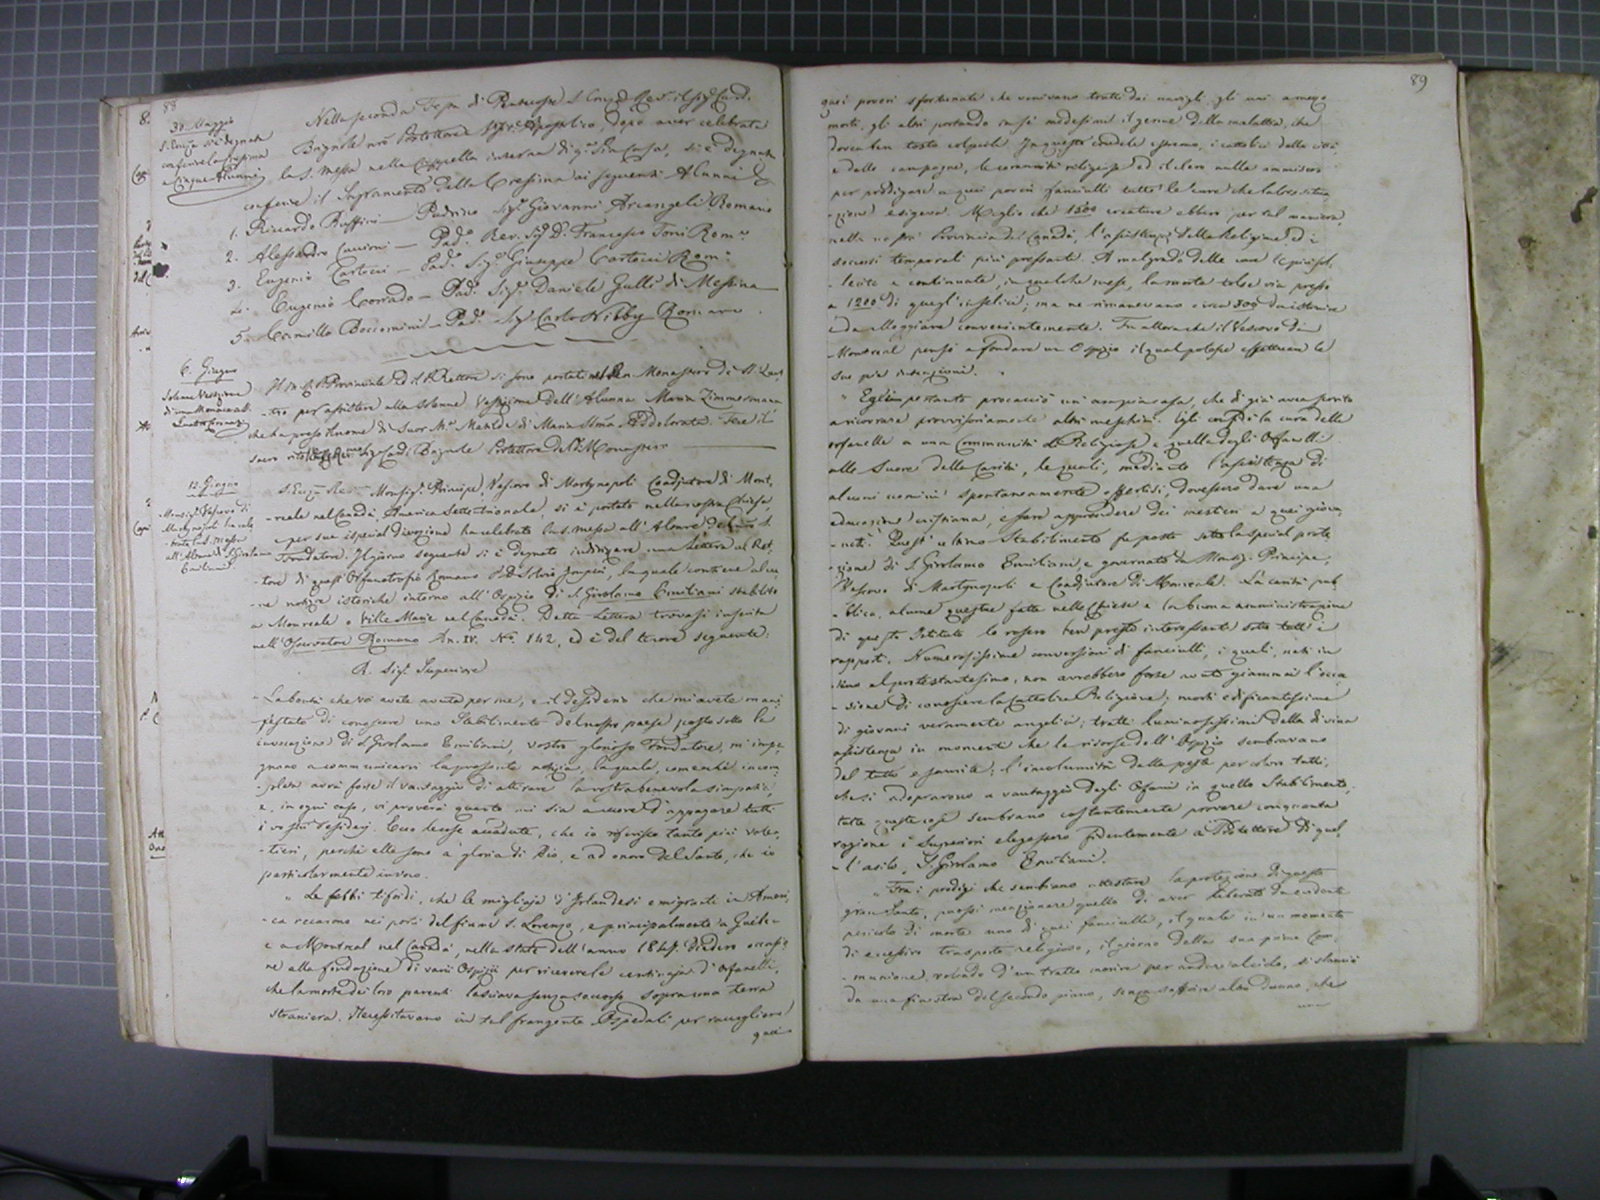 88
30. Maggio
S. Emza si è degnata
conferire la Cresima
a Cinque Alunni
Nella seconda Festa di Pentecoste S. Emza Rev. il Sig. Card.
Brignole nro Protettore e Visit. Apostolico, dopo aver celebrata
la S. Messa nella Cappella interna di q.a Pia Casa, si è degnata
conferire il Sagramento della Cresima ai seguenti Alunni
1. Riccardo Ruffini — Padrino Sig.r Giovanni Arcangeli Romano
2. Alessandro — Pad.o Rev. Sig. D. Francesco Torri Rom.o
3. Eugenio Cartocci — Pad.o Sig.r Giuseppe Cartocci Rom.o
4. Eugenio Corrado — Pad.o Sig.r Daniele Gulli di Messina
5. Camillo Boccomini — Pad.o Sig.r Carlo Nibby Romano.
6. Giugno
Solenne Vestizione
di una Monaca a S.
Lorenzo
Il Provinciale ed il P. Rettore si sono portati nel Ven. Monastero di
per assistere alla solenne Vestizione dell'Alunna Maria Zimmermann
che ha preso il nome di Suor M.a Matilde di Maria SSma Addolorata. Fece il
sacro rito Sig. Card. Brignole Protettore del Monastero
12. Giugno
Monsig. Vescovo di
Martyropoli ha cele-
brato la S. Messa
all'Altare di S. Girolamo
Emiliani
S. Ecza Rev. Monsig.r Principe, Vescovo di Martyropoli Coadjutore di Mont-
-reale nel Canadà, America Settentrionale, si è portato nella nostra Chiesa,
e per sua ispecial divozione ha celebrato la S. Messa all'Altare del S.
Fondatore. Il giorno seguente si è degnato indirizzare una lettera al Ret-
tore di quest'Orfanotrofio Romano P. D. la quale contiene alcu-
-ne notizie istoriche intorno all'Ospizio di S. Girolamo Emiliani stabilito
a Monreale o Ville Marie nel Canadà. Detta Lettera trovasi inserita
nell'Osservatore Romano An. IV. No. 142, ed è del tenore seguente:
R. Sig.r Superiore
La bontà che voi avete avuta per me, e il desiderio che mi avete mani-
festato di conoscere uno Stabilimento del nostro paese posto sotto la
invocazione di S. Girolamo Emiliani, vostro glorioso Fondatore, m'impe-
gnano a comunicarvi la presente notizia, la quale, comechè incom-
-pleta avrà forse il vantaggio di attirare la vostra benevola simpatia,
e, in ogni caso, vi proverà quanto mi sia a cuore d'appagare tutti
i vostri desideri. Ecco le cose accadute, che io riferisco tanto più volen-
-tieri, perchè elle sono a gloria di Dio, e ad onore del Santo, che io
particolarmente invoco.
" Le febbri tifoidi, che le migliaja d'Irlandesi emigrati in Ameri-
-ca recarono nei porti del fiume S. Lorenzo, e principalmente a Quebec
e a Montreal nel Canadà, nella state dell'anno 1847. Diedero occasio-
ne alla fondazione di varii Ospizii per ricevere le centinaja d'Orfanelli,
che la morte dei loro parenti lasciava senza soccorso sopra una terra
straniera. Necessitavano in tal frangente Ospedali per raccogliere
quei
89
quei poveri sfortunati che venivano tratti dai navigli, gli uni a mezzo
morti, gli altri portando in se medesimi il germe della malattia, che
dovea ben tosto colpirli. In questo crudele estremo, i cattolici della città
e delle campagne, le comunità religiose ed il clero nulla ommisero
per prodigare a quei poveri fanciulli tutte le cure che la loro situa-
-zione esigeva. Meglio che 1500 creature ebbero per tal maniera
nella nostra Provincia del Canadà, l'assistenza della Religione ed i
soccorsi temporali più pressanti. A malgrado delle cure le più sol-
-lecite e continuate, in qualche mese, la morte tolse via presso
a 1200 di quegl'infelici; ma ne rimanevano circa 300 da istruire
e da alloggiare convenientemente. Fu allora che il Vescovo di
Montreal pensò a fondare un Ospizio il qual potesse effettuare le
sue pie intenzioni.
" Egli importanto procacciò un'ampia casa, che di già avea servito
a ricovrare provvisoriamente altri meschini. Egli confidò la cura delle
orfanelle a una Communità di Religiose, e quella degli Orfanelli
alle Suore della Carità, le quali, mediante l'assistenza di
alcuni uomini spontaneamente offertisi, dovessero dare una
educazione cristiana, e fare apprendere dei mestieri a quei giova-
-netti. Quest'ultimo Stabilimento fu posto sotto la special prote-
-zione di S. Girolamo Emiliani, e governato da Monsig. Principe,
Vescovo di Martyropoli e Coadjutore di Monreale. La carità pub-
-blica, alcune questue fatte nelle Chiese e la buona amministrazione
di questo Istituto lo resero ben presto interessante sotto tutti i
rapporti. Numerosissime conversioni di fanciulli, i quali, nati in
seno al protestantesimo, non avrebbero forse avuto giammai l'occa-
-sione di conoscere la Cattolica Religione; morti edificantissime
di giovani veramente angelici; tratti luminosissimi della divina
assistenza in momenti che le risorse dell'Ospizio sembravano
del tutto esaurite; l'incolumità dalla peste per coloro tutti,
che si adoprarono a vantaggio degli Orfani in quello Stabilimento,
tutte queste cose sembrano costantemente provare con quanta
ragione i Superiori elegessero fidentemente a Protettore di quel-
-l'asilo, S. Girolamo Emiliani.
" Fra i prodigi che sembrano attestare la protezione di questo
gran Santo, puossi menzionare quello di aver liberato da evidente
pericolo di morte uno di quei fanciulli, il quale in un momento
di eccessivo trasporto religioso, il giorno della sua prima Com-
-munione, volendo d'un tratto morire per andare al cielo, si slanciò
da una finestra del secondo piano, senza soffrire alcun danno, che